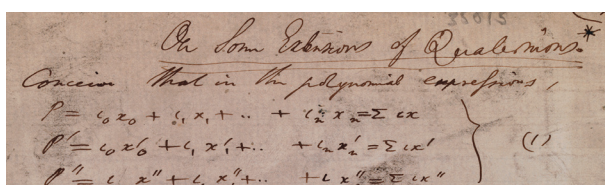 35015
On Some Extensions of Quaternions.*
Conceive that in the polynomial expressions,
P = ι₀x₀ + ι₁x₁ + .. + ιₙxₙ = Σ ιx
P' = ι₀x'₀ + ι₁x'₁ + .. + ιₙx'ₙ = Σ ιx' } (1)
P'' = ι x'' + ι x'' + .. + ι x'' = Σ ιx''